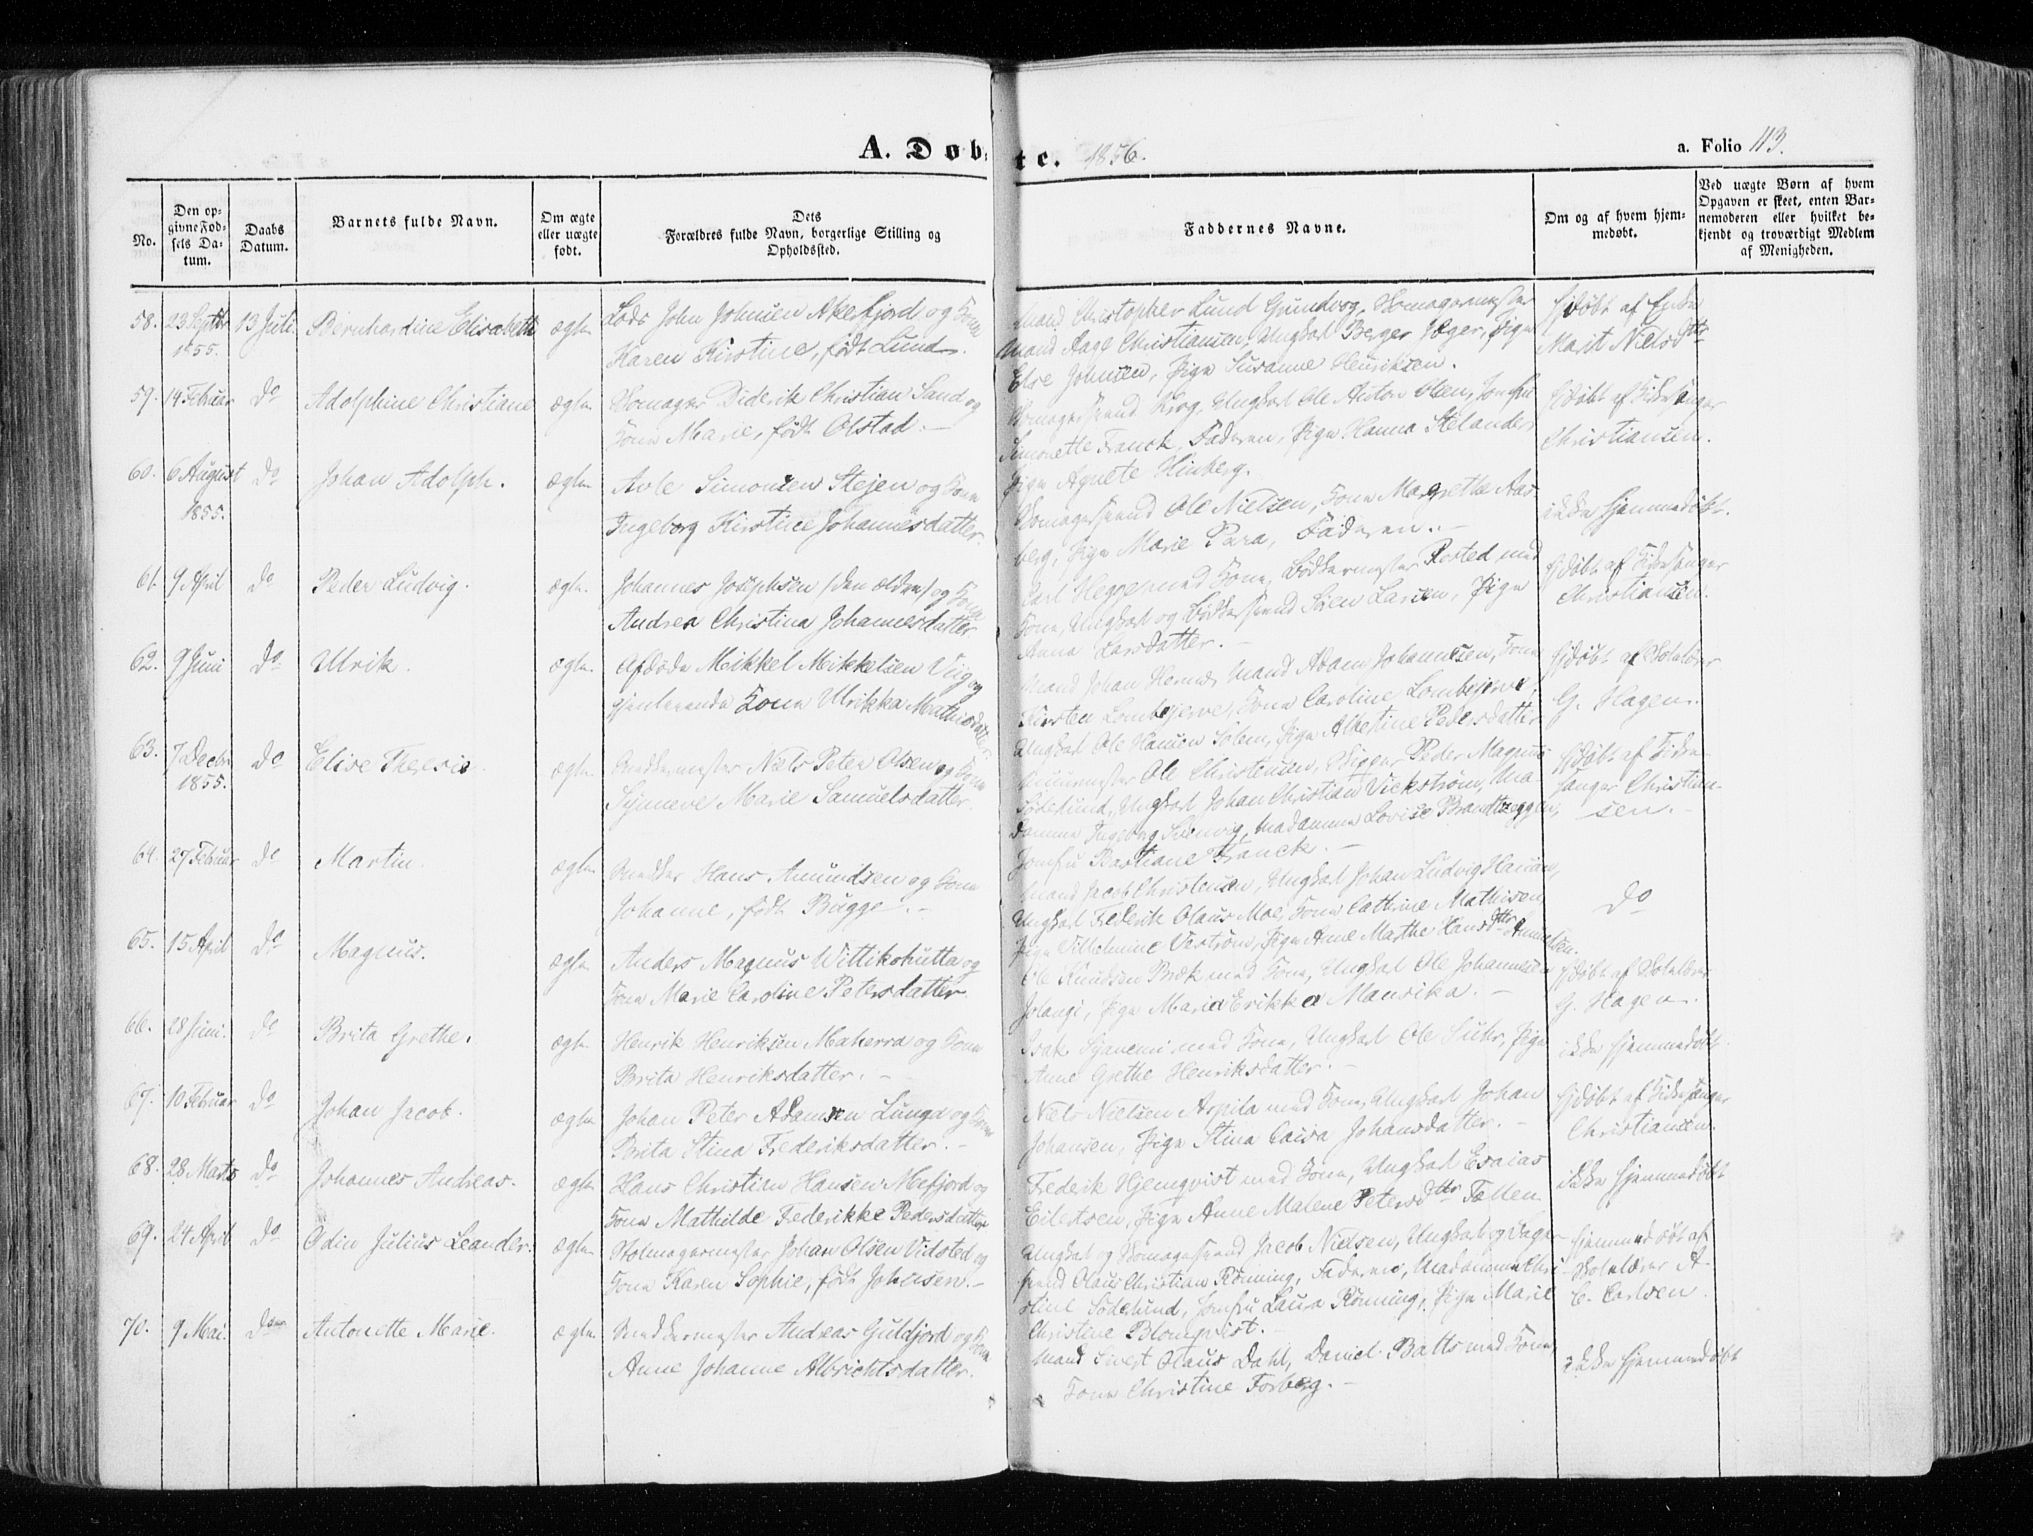 A. Døbte. 1856.
a. Folio 113.
No.
Den op-
givne Fød-
sels Da-
tum.
Daabs
Datum.
Barnets fulde Navn.
Om ægte
eller uægte
født.
Dets
Forældres fulde Navn, borgerlige Stilling og
Opholdssted.
Faddernes Navne.
Om og af hvem hjem-
medøbt.
Ved uægte Børn af hvem
Opgaven er skeet, enten Bar-
nemoderen eller hvilket be-
kjendt og troværdigt Medlem
af Menigheden.
58. 23 Septbr 1855. 13 Juli. Bernhardine Elisabeth ægte
Lods John Johnsen Akefjord og Kone
Karen Kirstine, født Lund.
Mand Christopher Lund Grundvog, Skomagermester
Mand Aage Christiansen, Ungkarl Berger Jæger, Pige
Else Johnsen, Pige Susanne Henriksen.
hjdøbt af Enke
Marit Nielsdtr
59. 14 Februar do Adolphine Christiane ægte
Skomager Diderik Christian Sand og
Kone Marie, født Olstad.
Skomagersvend Krog, Ungkarl Ole Anton Olsen, Jomfru
Simonette Franck, Faderen, Pige Hanna Stelander
Pige Agnete Hinberg.
hjdøbt af Kirkesanger
Christiansen.
60. 6 August 1855. do Johan Adolph. ægte
Avle Simonsen Stejen og Kone
Ingeborg Kirstine Johannesdatter.
Skomagersvend Ole Nielsen, Kone Magrethe Aas-
berg, Pige Marie Para, Faderen.
ikke hjemmedøbt.
61. 9 April do Peder Ludvig. ægte.
Johannes Josephsen (den ældre) og Kone
Andrea Christina Johannesdatter
Carl Heggen med Kone, Bødkermester Rosted med
Kone, Ungkarl og Bødkersvend Sören Larsen, Pige
Anna Larsdatter.
hjdøbt af Kirkesanger
Christiansen.
62. 9 Juni do Ulrik. ægte.
Afdøde Mikkel Mikkelsen Viig og
gjenlevende Kone Ulrikka Mathisdatter
Mand Johan Hernes, Mand Adam Johannesen, Kone
Kirsten Lombejerve, Kone Caroline Lombejerve,
Ungkarl Ole Hansen Solem, Pige Albertine Pedersdatter
hjdøbt af Skolelærer
G. Hagen.
63. 7 Decbr 1855. do Elise Therese ægte
Snedkermester Niels Peter Olsen og Kone
Synneve Marie Samuelsdatter.
Ole Christensen, Skipper Peder Magnus
Södelund, Ungkarl Johan Christian Vickstrøm, Ma-
damme Ingeborg Solevig, Madamme Lovise Brandtzeggen,
Jomfru Bastiane Franck.
hjdøbt af Kirke-
sanger Christian-
sen.
64. 27 Februar do Martin. ægte
Snedker Hans Amundsen og Kone
Johanne, født Bugge.
Mand Jacob Christensen, Ungkarl Johan Ludvig Hansen,
Ungkarl Frederik Olaus Moe, Kone Cathrine Mathisen,
Pige Vilhelmine Vestrøm, Pige Anne Marthe Hansdtr Amundsen.
do
65. 15 April do Magnus. ægte
Anders Magnus Wittikohutta og
Kone Marie Caroline Petersdatter.
Ole Knudsen Bræk med Kone, Ungkarl Ole Johannesen
Jolangi, Pige Maria Erikka Mansika.
hjdøbt af Skolelærer
G. Hagen.
66. 28 Juni. do Brita Grethe. ægte
Henrik Henriksen Maherra og Kone
Brita Henriksdatter.
Isak Sjanemi med Kone, Ungkarl Ole Suhr, Pige
Anne Grethe Henriksdatter.
ikke hjemmedøbt.
67. 10 Februar do Johan Jacob. ægte
Johan Peter Adamsen Lunga og Kone
Brita Stina Frederiksdatter.
Niels Nielsen Aspila med Kone, Ungkarl Johan
Johansen, Pige Stina Caisa Johansdatter.
hjdøbt af Kirkesanger
Christiansen.
68. 28 Marts do Johannes Andreas. ægte
Hans Christian Hansen Mefjord og
Kone Mathilde Federikke Pedersdatter
Frederik Hjemqvist med Kone, Ungkarl Esaias
Eilertsen, Pige Anne Malene Petersdtr Fallen
ikke hjemmedøbt
69. 24 April do Odin Julius Leander. ægte
Stolmagermester Johan Olsen Vidsted og
Kone Karen Sophie, født Johnsen.
Ungkarl og Skomagersvend Jacob Nielsen, Ungkarl og Bager-
svend Olaus Christian Rönning, Faderen, Madamme Chri-
stine Södelund, Jomfru Laura Rönning, Pige Marie
Christine Blomqvist.
hjemmedøbt af
Skolelærer A.
C. Carlsen.
70. 9 Mai. do Antonette Marie. ægte
Snedkermester Andreas Guldjord og Kone
Anne Johanne Albrichtsdatter.
Mand Sivert Olaus Dahl, Daniel Batts med Kone
Kone Christine Forberg.
ikke hjemmedøbt